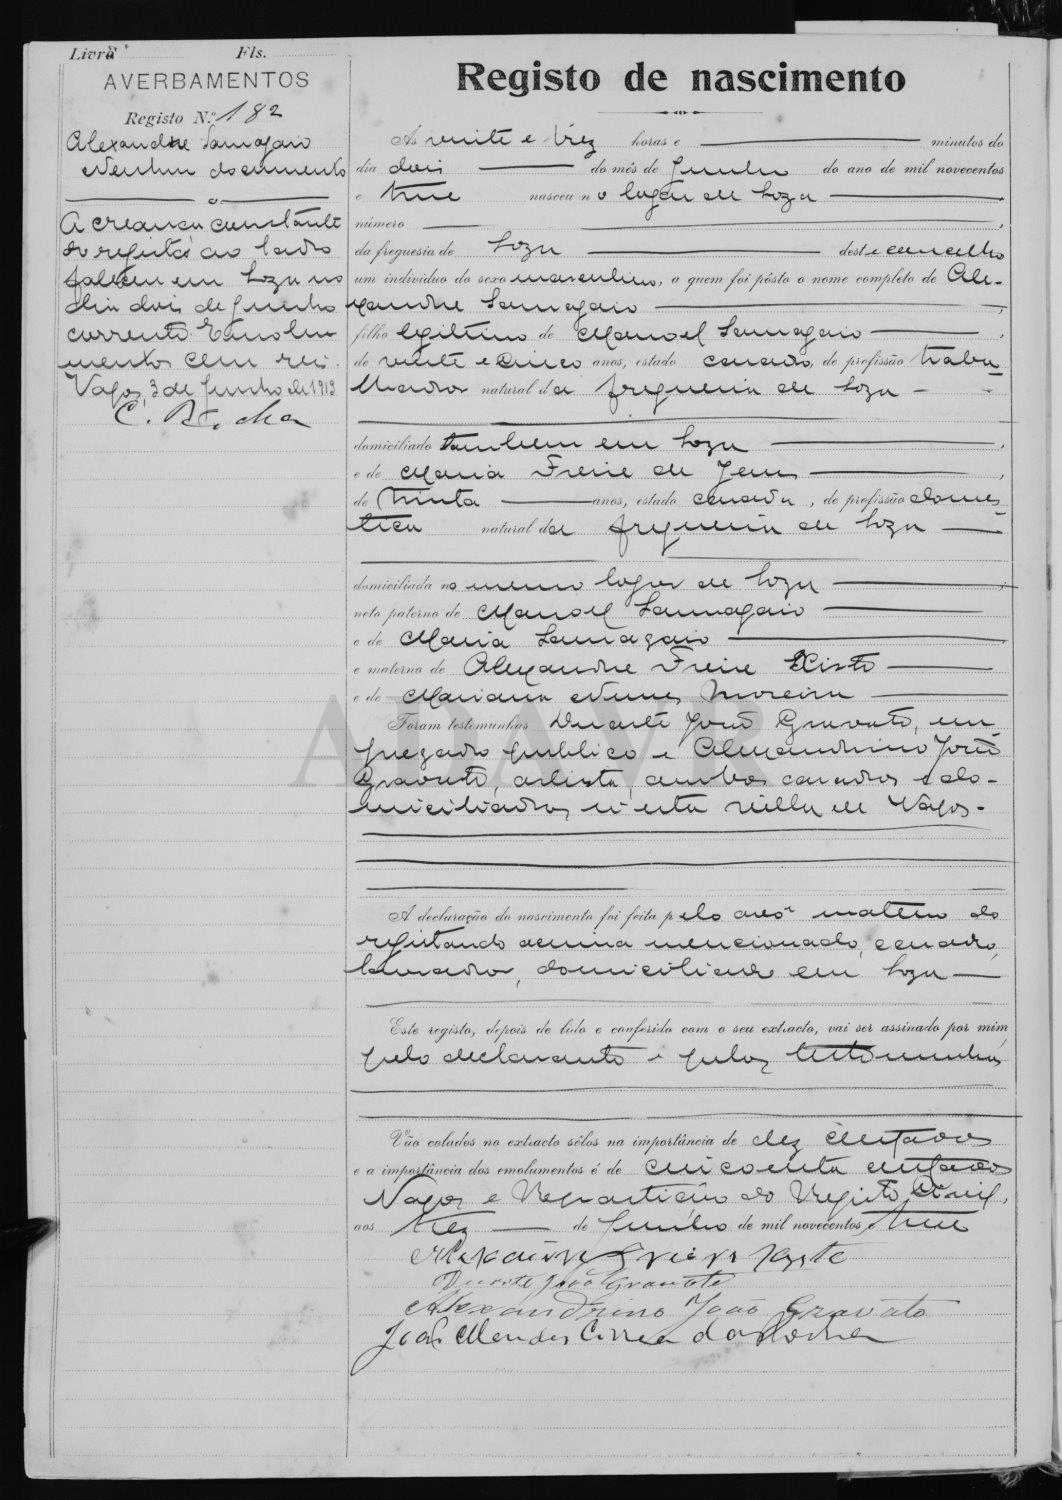 Livro Fls.
AVERBAMENTOS
Registo N.º 182
Alexandre Samagaio
Nenhum documento
A creança constante
do registo ao lado
falleceu em Soza no
dia dois de Junho
corrente. Emolu
mentos cem reis.
Vagos, 3 de Junho de 1913
C. Rocha
Registo de nascimento
Ás vinte e trez horas e minutos do
dia dois do mês de Junho do ano de mil novecentos
e treze nasceu no logar de Soza
número
da freguesia de Soza deste concelho
um indivíduo do sexo masculino, a quem foi pôsto o nome completo de Ale-
xandre Samagaio
filho legitimo de Manoel Samagaio
de vinte e cinco anos, estado casado, de profissão traba
lhador natural da freguesia de Soza
domiciliado tambem em Soza
e de Maria Freire de Jesus
de trinta anos, estado casada, de profissão domes
tica natural da freguesia de Soza
domiciliada no mesmo logar de Soza
neto paterno de Manoel Samagaio
e de Maria Samagaio
e materno de Alexandre Freire Xisto
e de Mariana Nunes Moreira
Foram testemunhas Duarte João Gravato, em
pregado publico e Alexandrino João
Gravato, artista, ambos casados e do-
miciliados n'esta villa de Vagos.
A declaração do nascimento foi feita pelo avô materno do
registando acima mencionado, casado,
lavrador, domiciliado em Soza
Este registo, depois de lido e conferido com o seu extracto, vai ser assinado por mim
pelo declarante e pelas testemunhas
Vão colados no extracto sêlos na importância de dez centavos
e a importância dos emolumentos é de cincoenta centavos
Vagos e Repartição do Registo Civil,
aos trez de Junho de mil novecentos e treze
Alexandre Freire Xisto
Duarte João Gravato
Alexandrino João Gravato
João Mendes Correa da Rocha